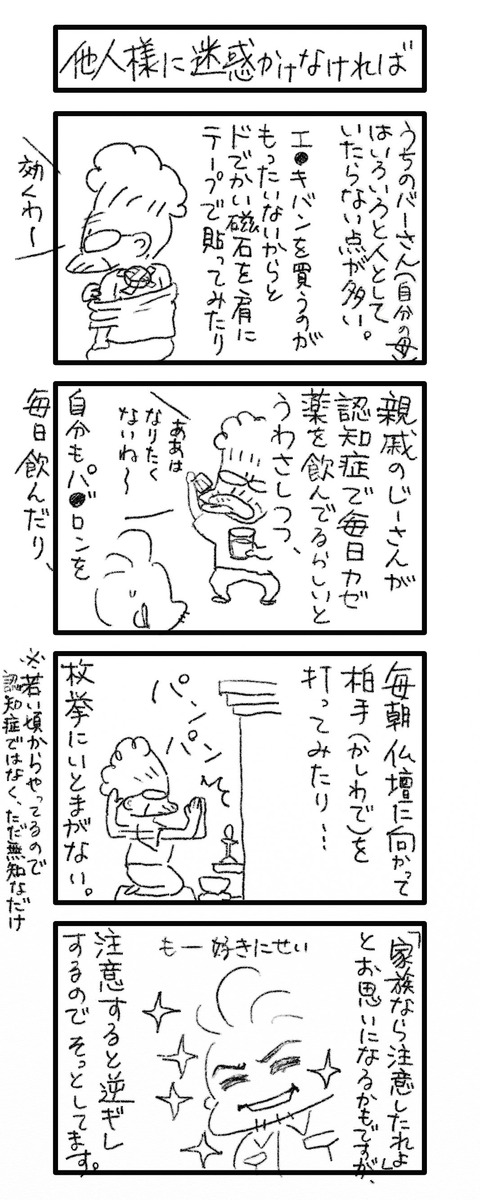 他人様に迷惑かけなければ
うちのバーさん(自分の母)
はいろいろと人として
いたらない点が多い。
エ●キバンを買うのが
もったいないからと
ドでかい磁石を肩に
テープで貼ってみたり
効くわ〜
親戚のじーさんが
認知症で毎日カゼ
薬を飲んでるらしいと
うわさしつつ、
ああは
なりたく
ないね〜
自分もパ●ロンを
毎日飲んだり、
毎朝仏壇に向かって
柏手(かしわで)を
打ってみたり…
パン
パン
枚挙にいとまがない。
※若い頃からやってるので
認知症ではなく、ただ無知なだけ
「家族なら注意したれよ」
とお思いになるかもですが、
もー好きにせい
注意すると逆ギレ
するのでそっとしてます。